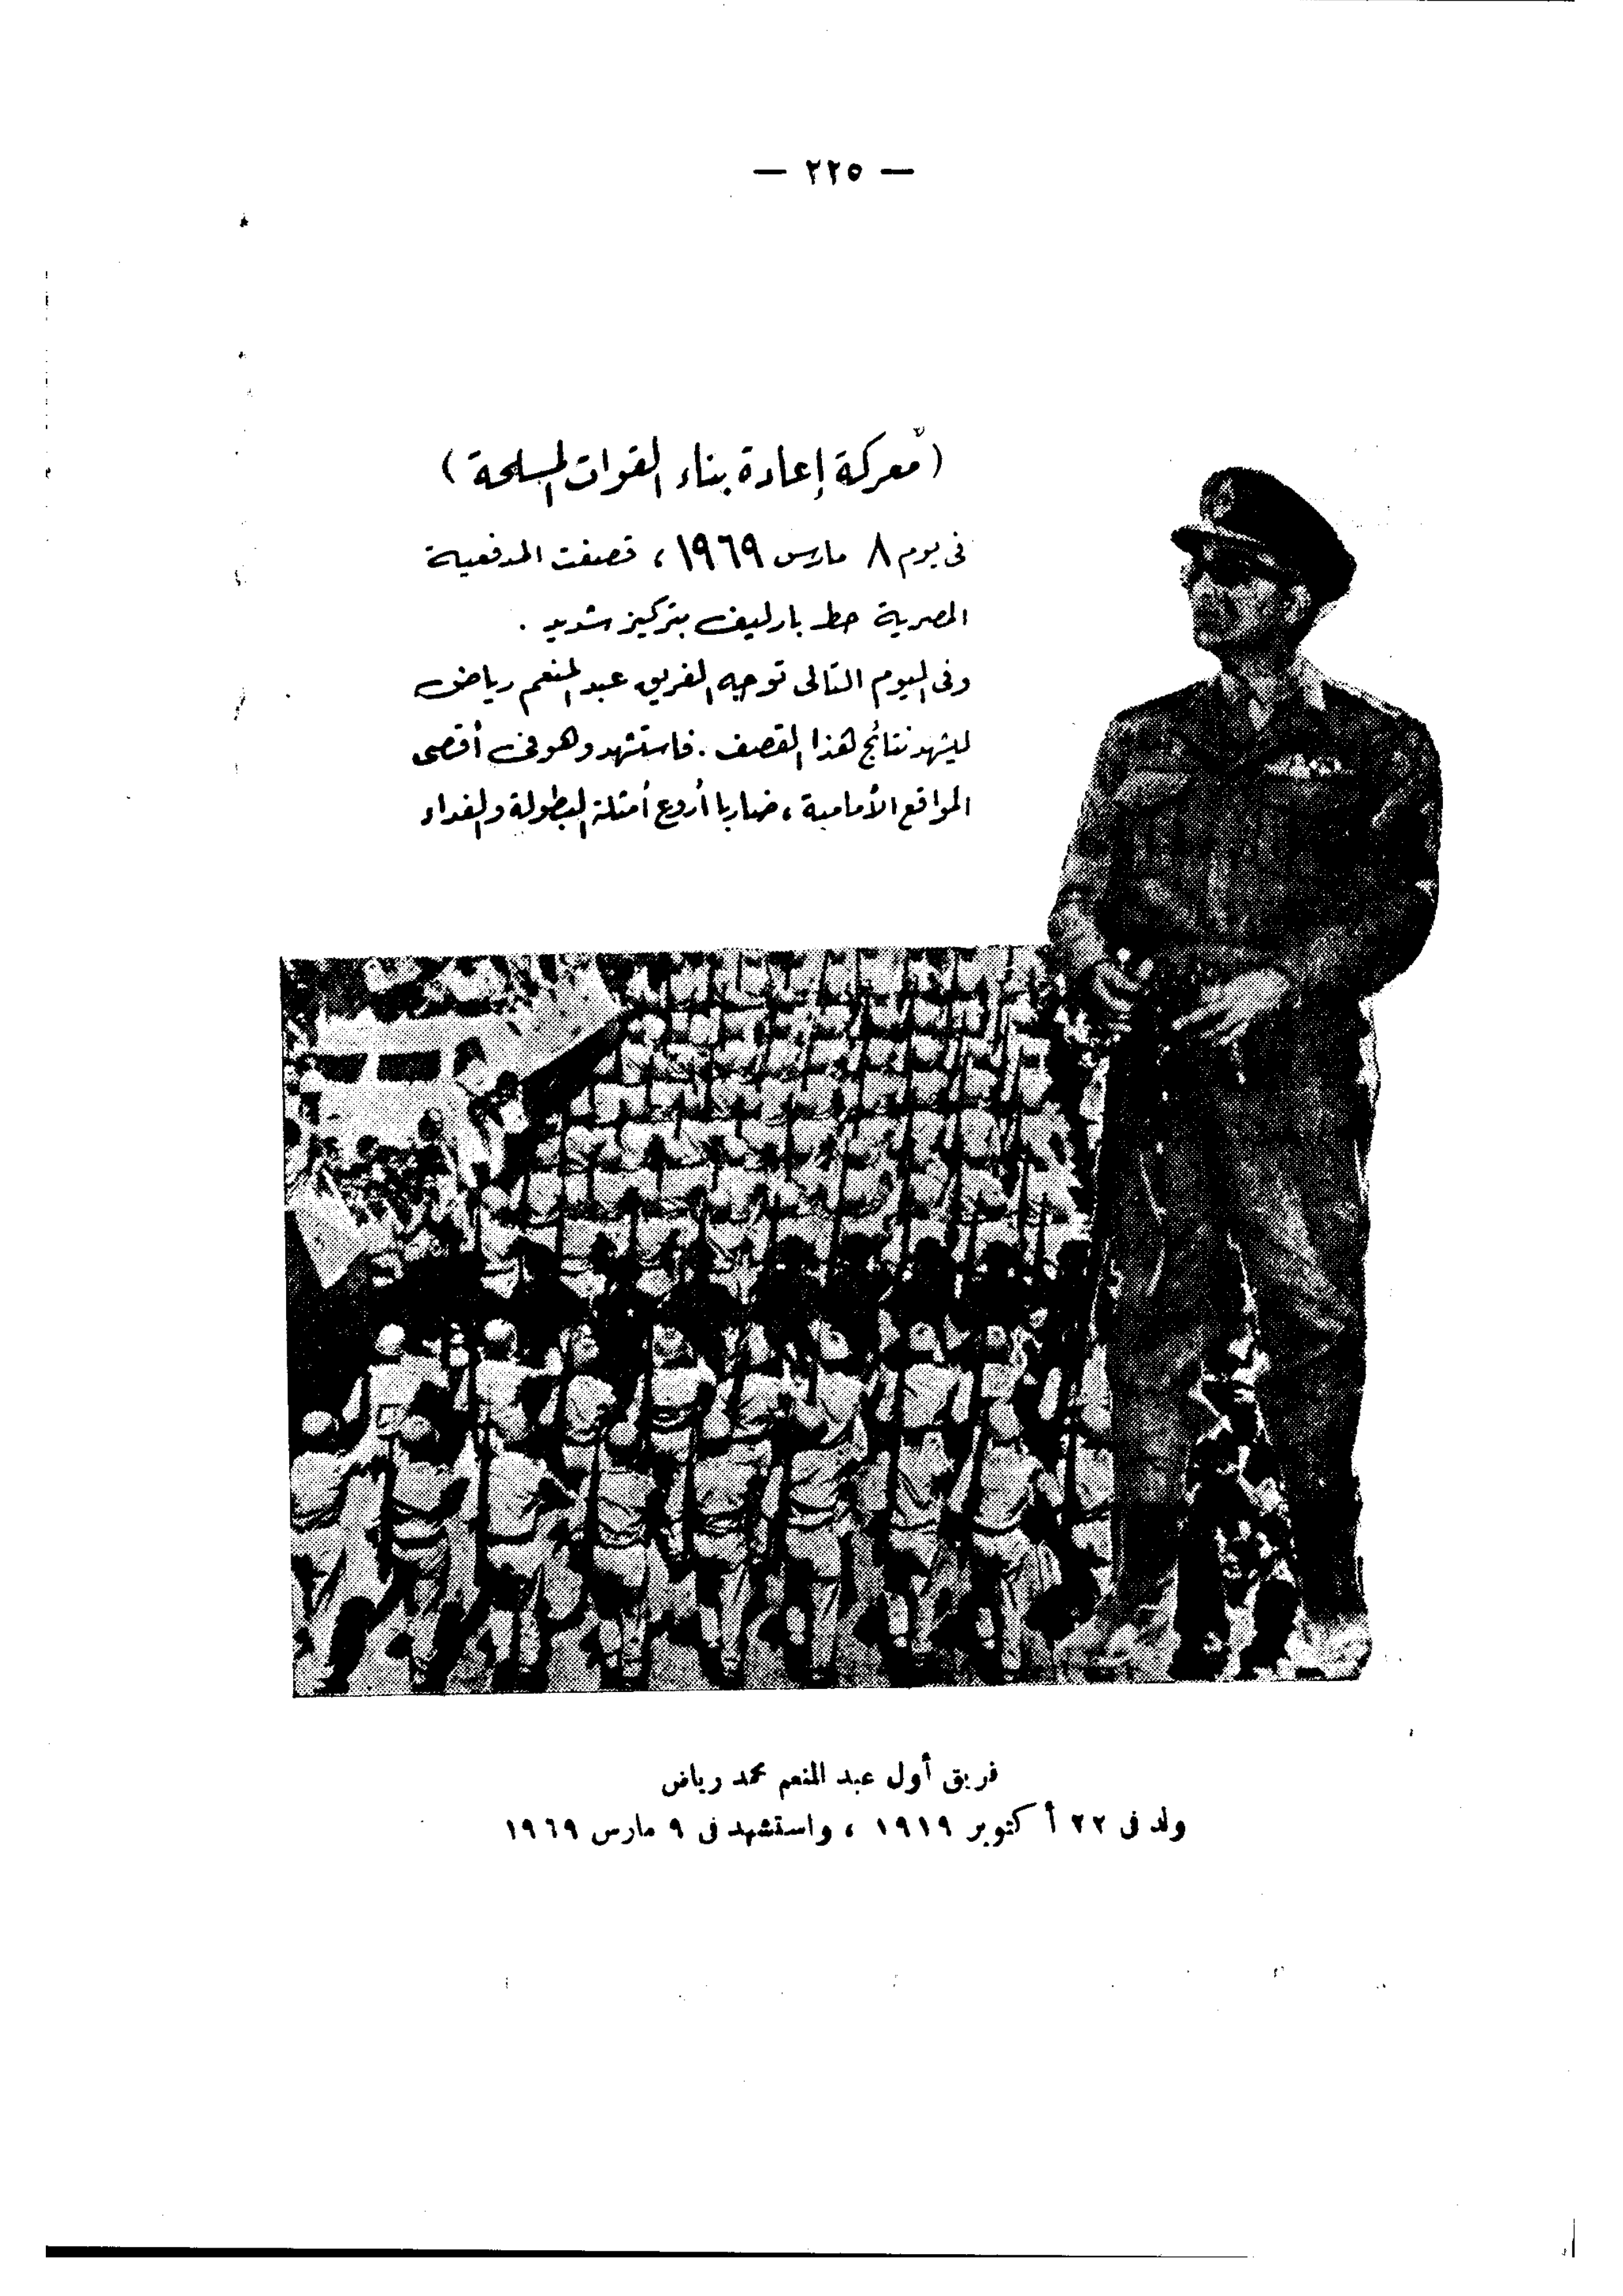 — ٢٢٥ —
(معركة إعادة بناء القوات المسلحة)
فى يوم ٨ مارس ١٩٦٩، قصفت المدفعية
المصرية خط بارليف بتركيز شديد .
وفى اليوم التالى توجه الفريق عبد المنعم رياض
ليشهد نتائج هذا القصف . فاستشهد وهو فى أقصى
المواقع الأمامية ، ضاربا أروع أمثلة البطولة والفداء
فريق أول عبد المنعم محمد رياض
ولد فى ٢٢ أكتوبر ١٩١٩ ، واستشهد فى ٩ مارس ١٩٦٩